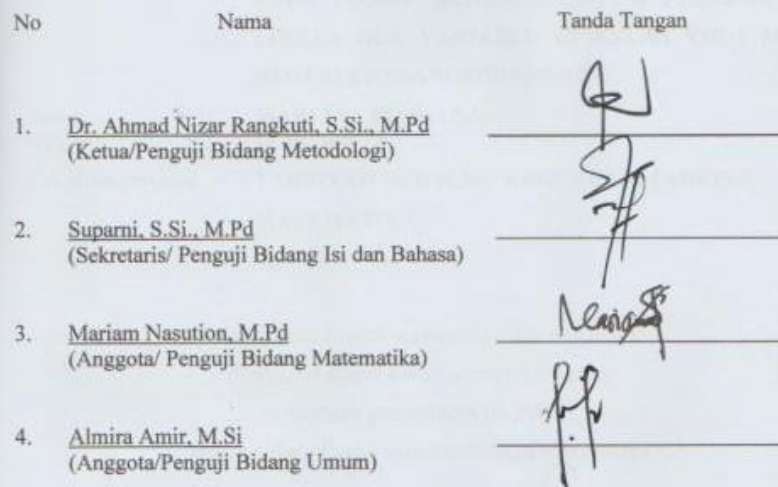 No Nama Tanda Tangan
1. Dr. Ahmad Nizar Rangkuti, S.Si., M.Pd
(Ketua/Penguji Bidang Metodologi)
2. Suparni, S.Si., M.Pd
(Sekretaris/ Penguji Bidang Isi dan Bahasa)
3. Mariam Nasution, M.Pd
(Anggota/ Penguji Bidang Matematika)
4. Almira Amir, M.Si
(Anggota/Penguji Bidang Umum)